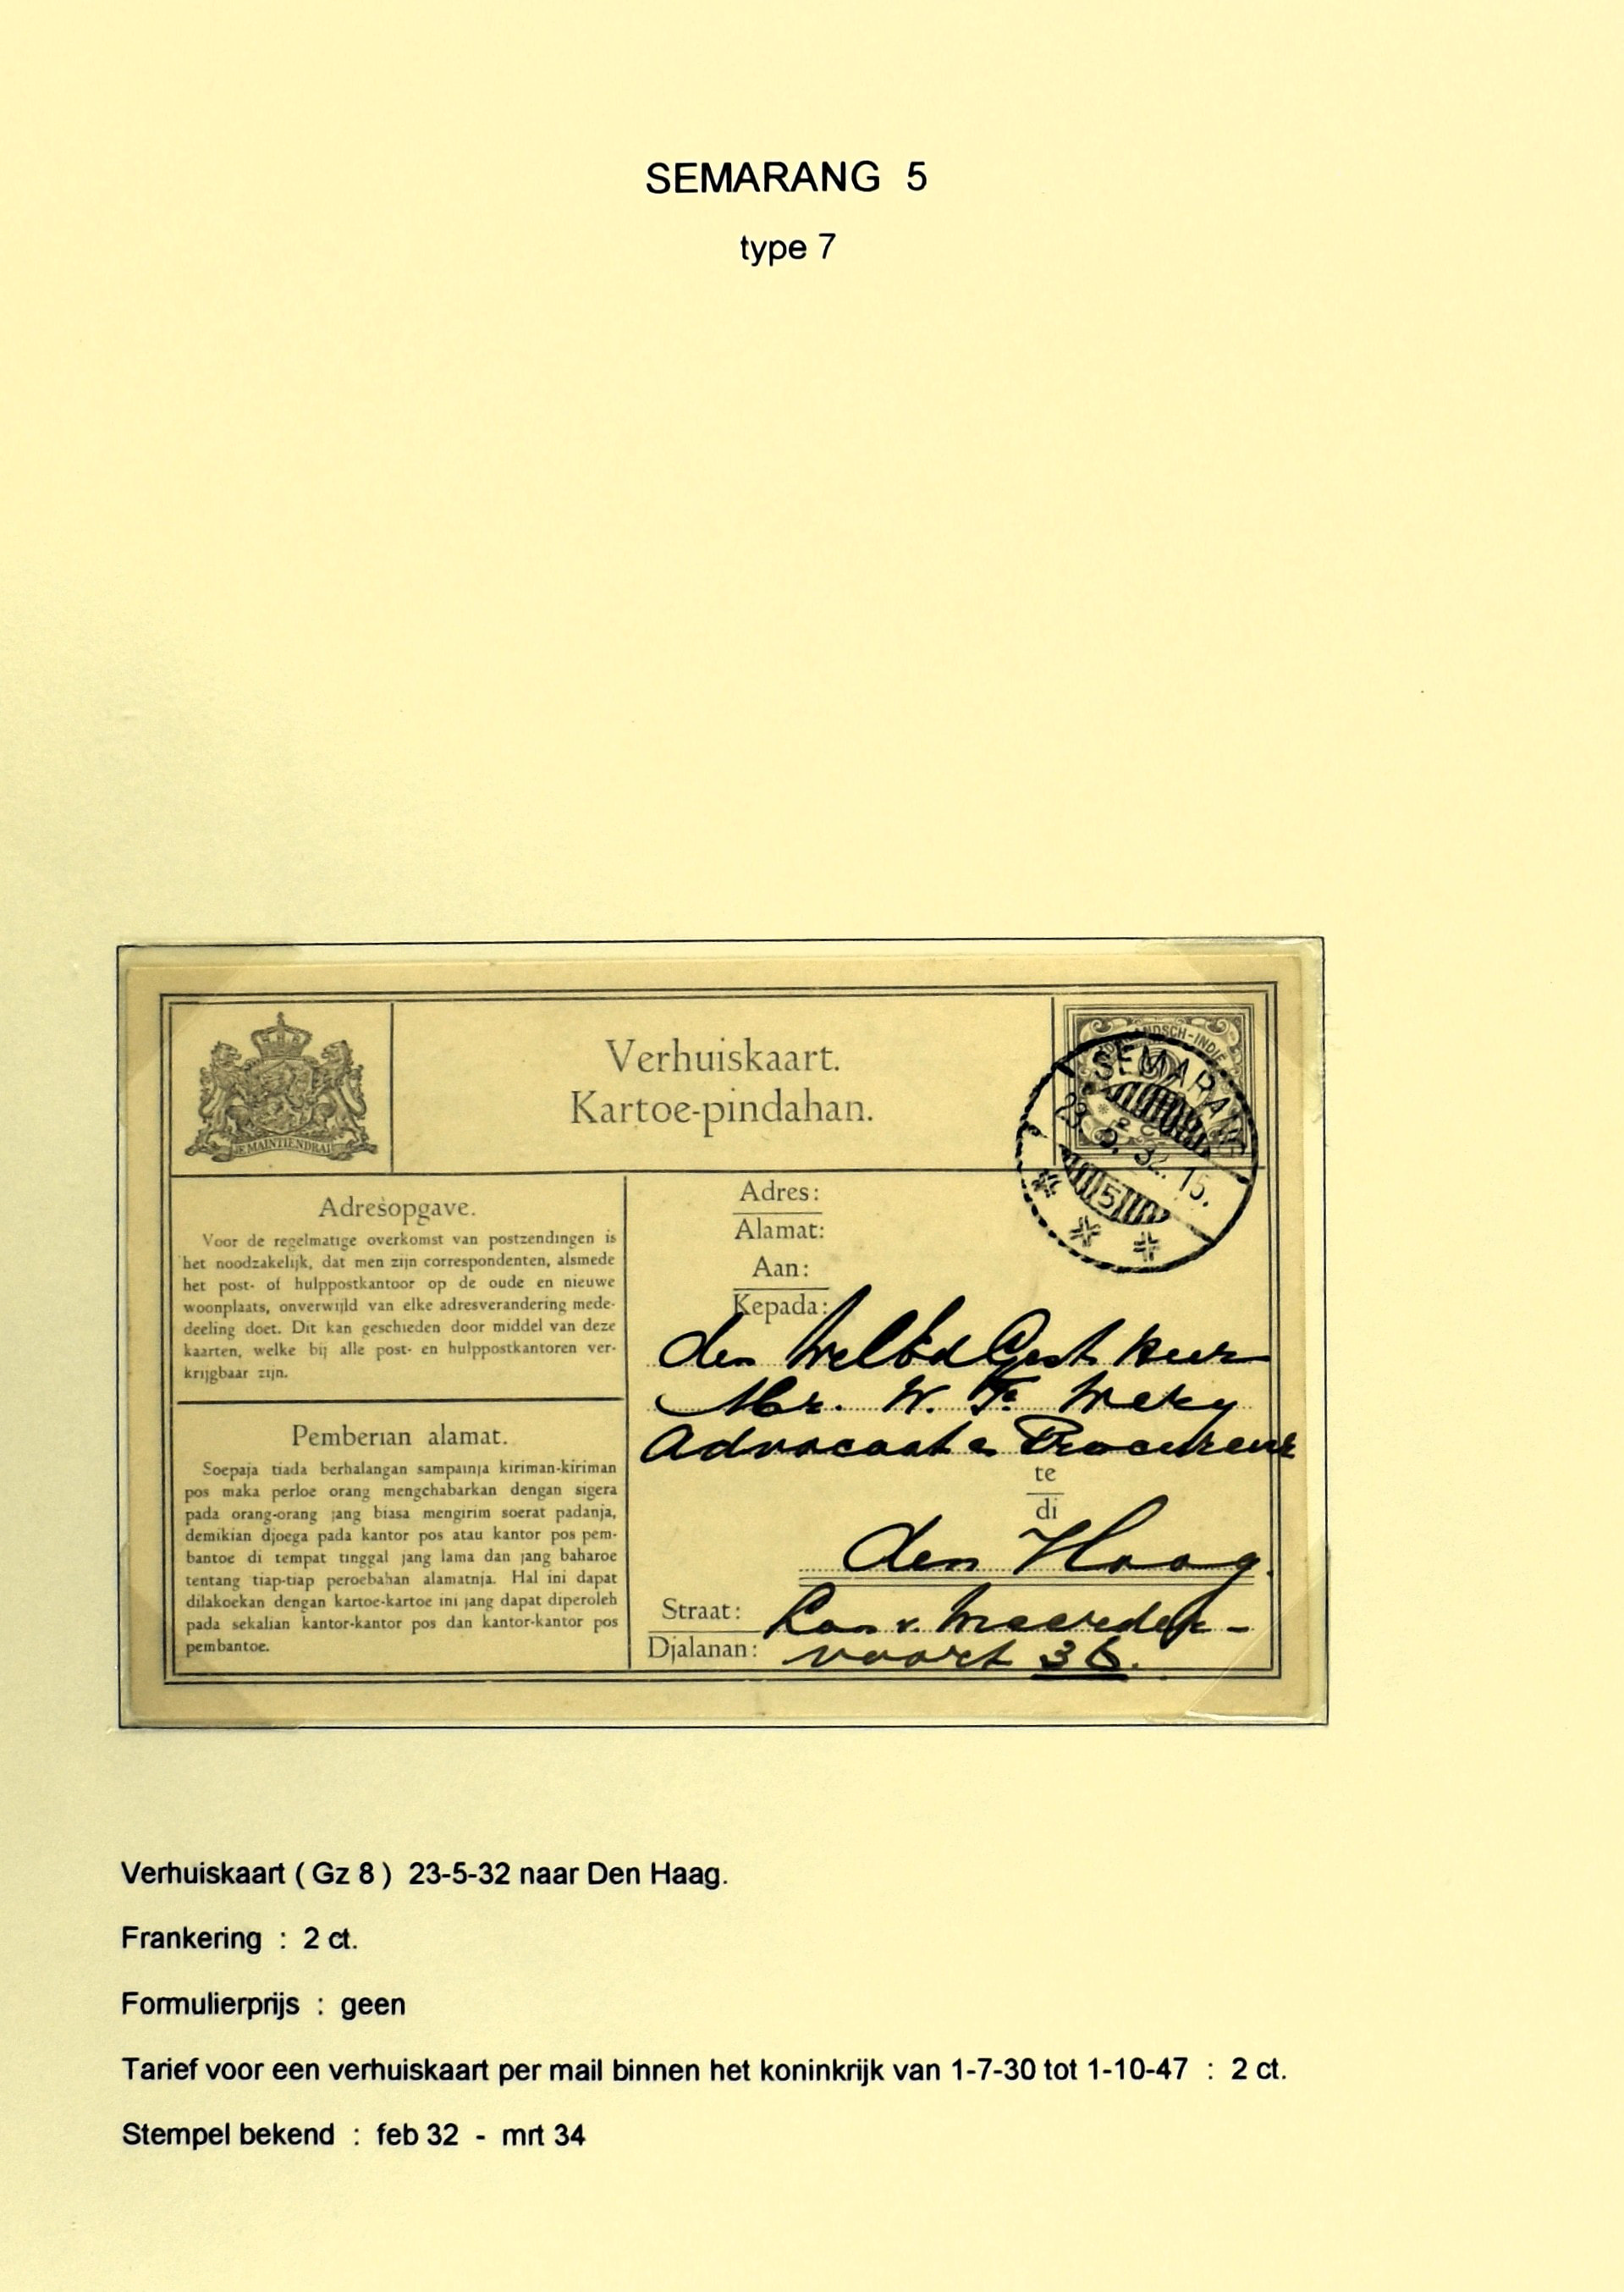 SEMARANG 5
type 7
Verhuiskaart.
Kartoe-pindahan.
JE MAINTIENDRAI
NDSCH-INDIË
SEMARANG
23. 5. 32. 15.
5
Adresopgave.
Voor de regelmatige overkomst van postzendingen is
het noodzakelijk, dat men zijn correspondenten, alsmede
het post- of hulppostkantoor op de oude en nieuwe
woonplaats, onverwijld van elke adresverandering mede-
deeling doet. Dit kan geschieden door middel van deze
kaarten, welke bij alle post- en hulppostkantoren ver-
krijgbaar zijn.
Pemberian alamat.
Soepaja tiada berhalangan sampainja kiriman-kiriman
pos maka perloe orang mengchabarkan dengan sigera
pada orang-orang jang biasa mengirim soerat padanja,
demikian djoega pada kantor pos atau kantor pos pem-
bantoe di tempat tinggal jang lama dan jang baharoe
tentang tiap-tiap peroebahan alamatnja. Hal ini dapat
dilakoekan dengan kartoe-kartoe ini jang dapat diperoleh
pada sekalian kantor-kantor pos dan kantor-kantor pos
pembantoe.
Adres:
Alamat:
Aan:
Kepada:
den WelEd Gest heer
Mr. W. F. Wery
Advocaat e Procureur
te
di
den Haag
Straat: Laan v. Meerder-
Djalanan: voort 36.
Verhuiskaart ( Gz 8 ) 23-5-32 naar Den Haag.
Frankering : 2 ct.
Formulierprijs : geen
Tarief voor een verhuiskaart per mail binnen het koninkrijk van 1-7-30 tot 1-10-47 : 2 ct.
Stempel bekend : feb 32 - mrt 34